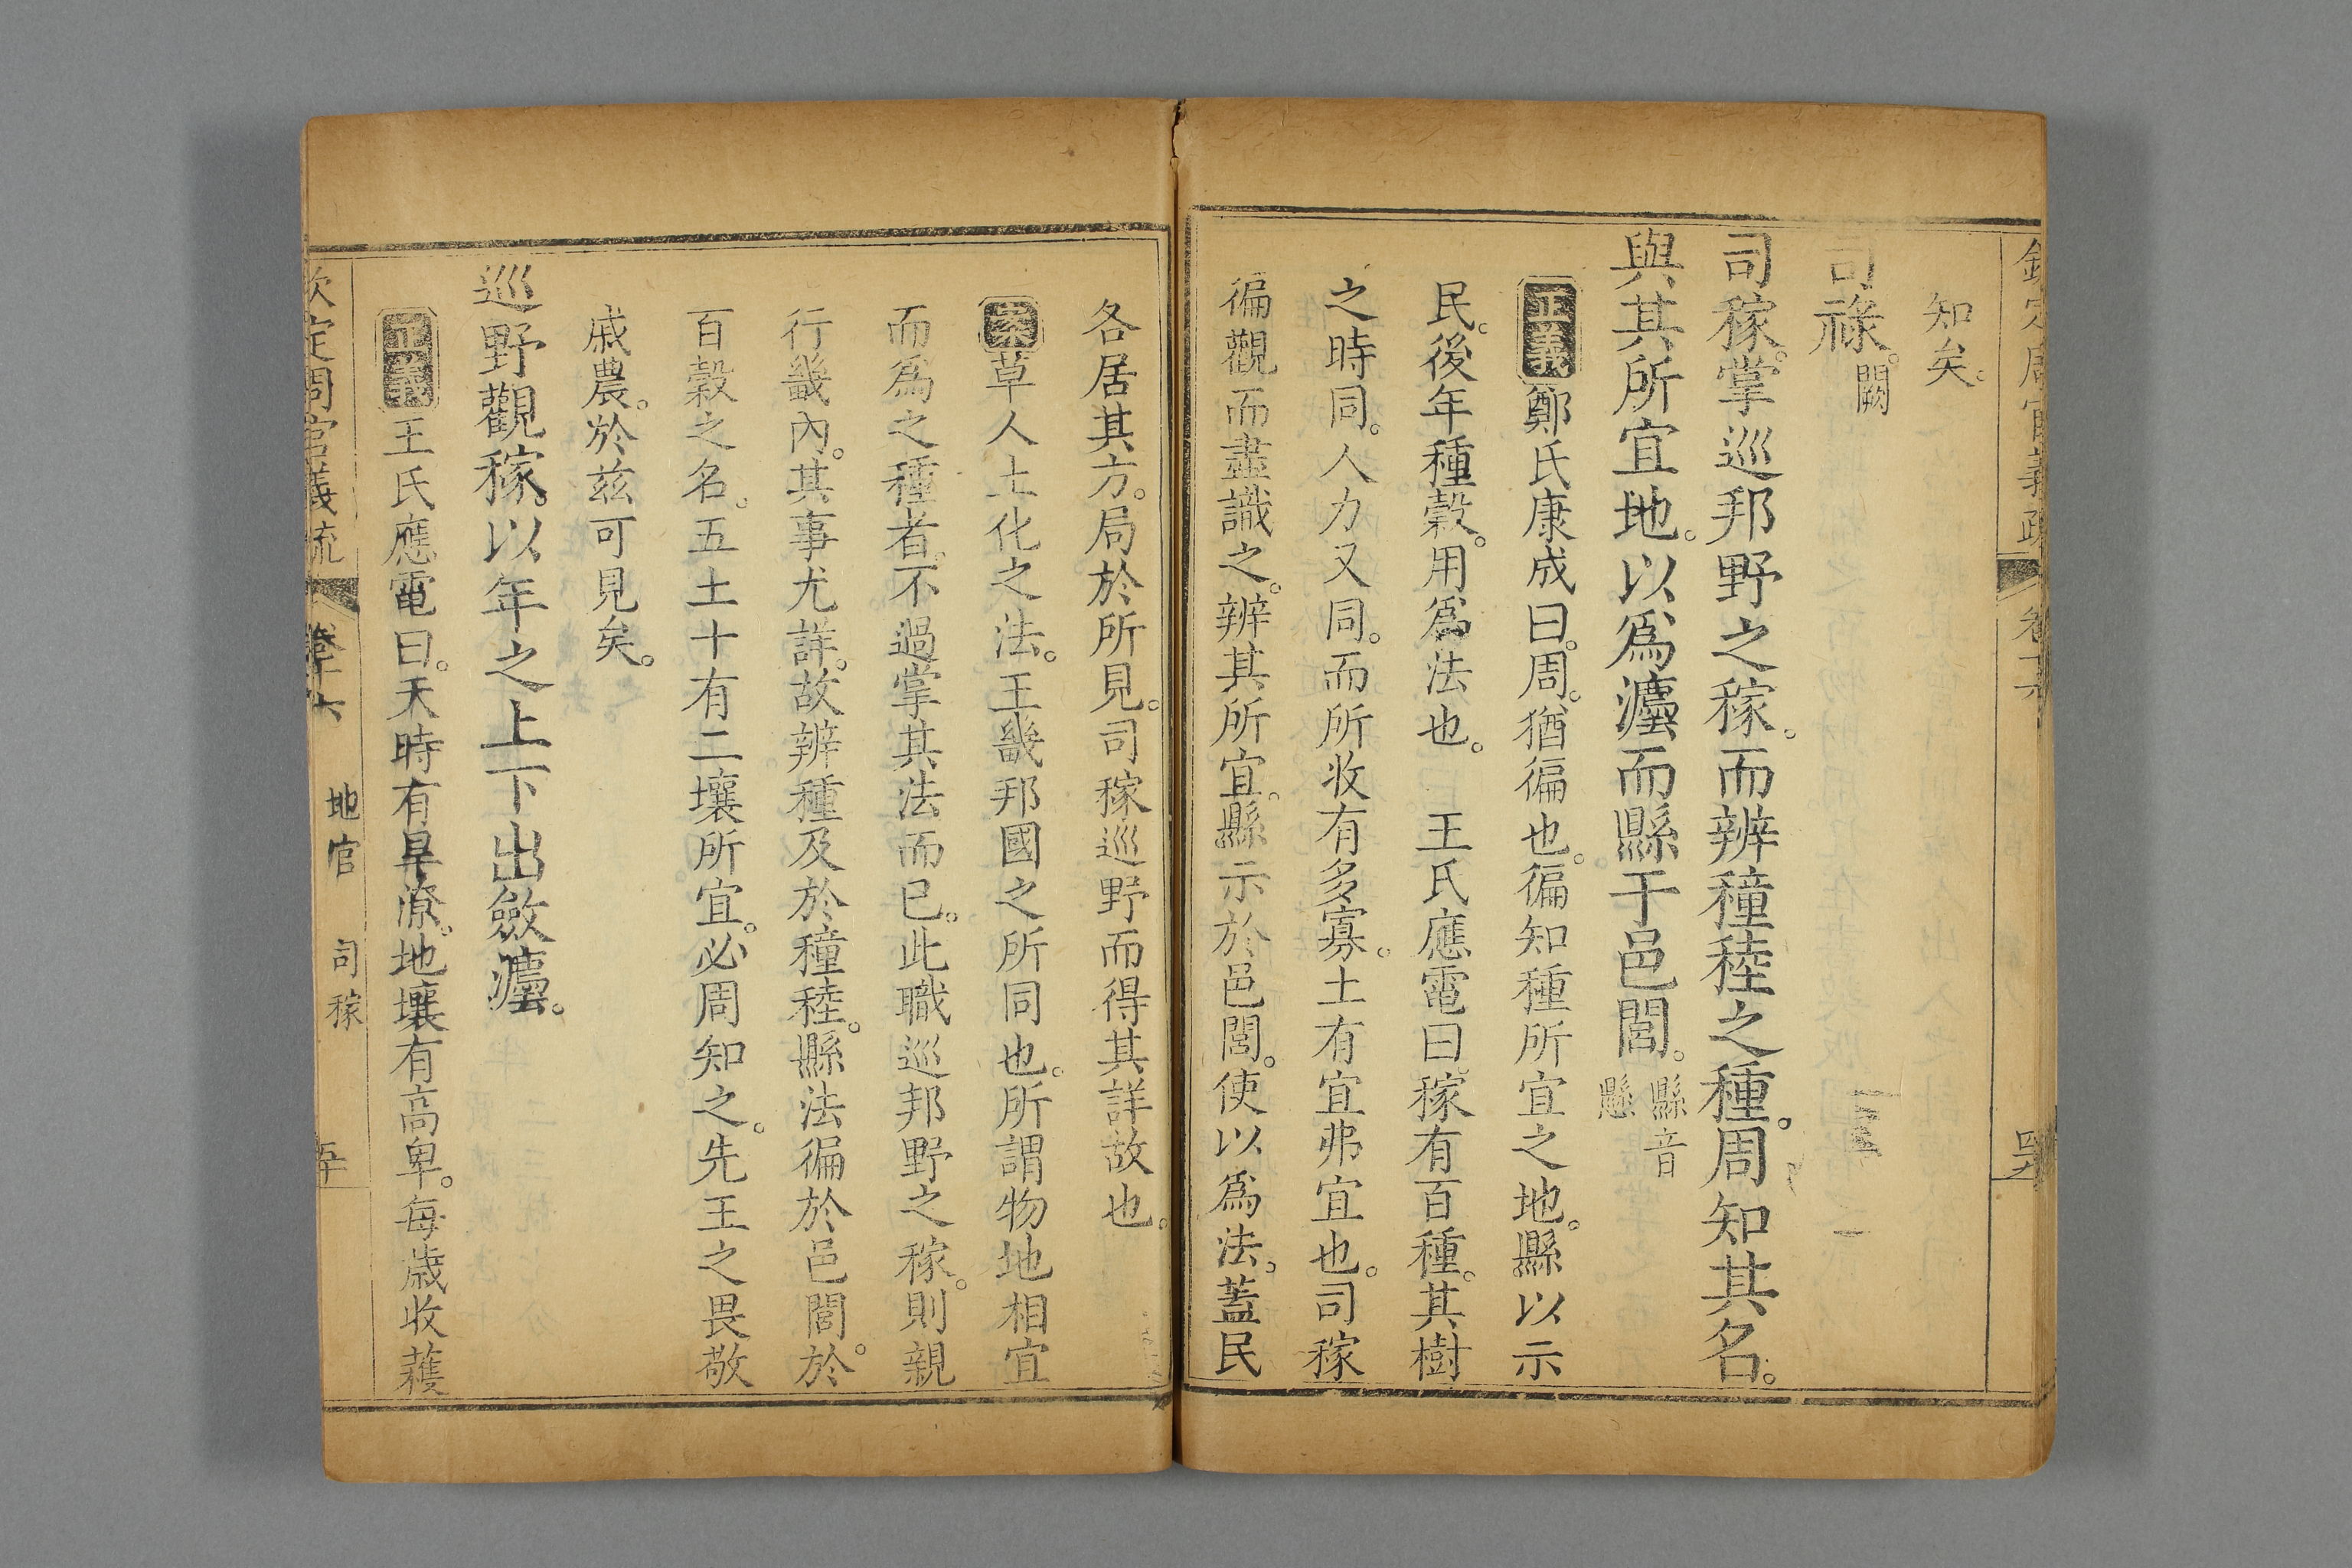 欽定周官義疏 卷十六
知矣。
司祿。闕
司稼。掌巡邦野之稼。而辨穜稑之種。周知其名。
與其所宜地。以爲灋而縣于邑閭。縣音懸
正義鄭氏康成曰。周。猶徧也。徧知種所宜之地。縣以示
民。後年種穀。用爲法也。 王氏應電曰。稼有百種。其樹
之時同。人力又同。而所收有多寡。土有宜弗宜也。司稼
徧觀而盡識之。辨其所宜。縣示於邑閭。使以爲法。蓋民
各居其方。局於所見。司稼巡野而得其詳故也。
案草人土化之法。王畿邦國之所同也。所謂物地相宜
而爲之種者。不過掌其法而已。此職巡邦野之稼。則親
行畿內。其事尤詳。故辨種及於穜稑。縣法徧於邑閭。於
百穀之名。五土十有二壤所宜。必周知之。先王之畏敬
戚農。於兹可見矣。
巡野觀稼。以年之上下出斂灋。
正義王氏應電曰。天時有旱潦。地壤有高卑。每歲收穫
欽定周官義疏 卷十六 地官 司稼 五十